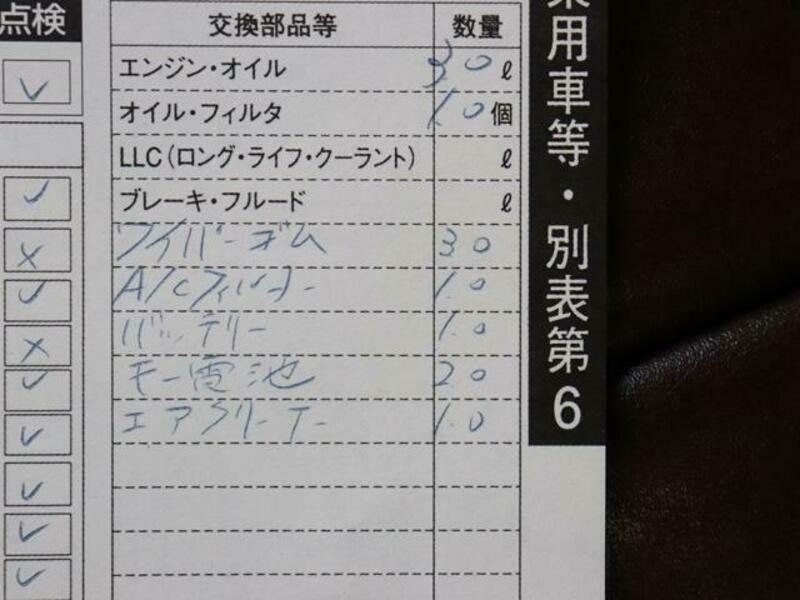 点検
交換部品等 数量
エンジン・オイル 3.0 ℓ
オイル・フィルタ 1.0 個
LLC（ロング・ライフ・クーラント） ℓ
ブレーキ・フルード ℓ
ワイパーゴム 3.0
A/Cフィルター 1.0
バッテリー 1.0
キー電池 2.0
エアクリーナー 1.0
乗用車等・別表第6